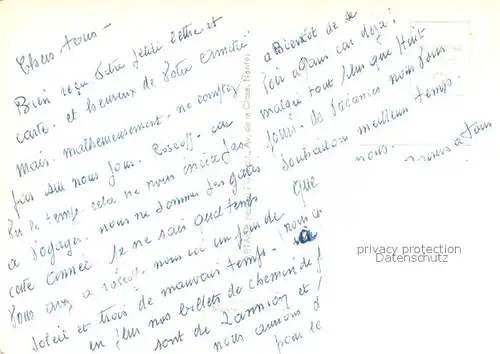 Chers tous -
Bien reçu votre petite lettre et
carte. et heureux de votre amitié.
mais. malheureusement. ne comptez
pas sur nous pour. Roscoff. car
vu le temps. cela ne nous incite pas
a voyager. nous ne sommes pas gatés
cette année je ne sais quel temps
vous avez a roscoff. nous ici un jour de
soleil et trois de mauvais temps.
en plus nos billets de chemin de f
sont de Lannion et
nous aurions d
pour le
que
nous
a Bientôt de se
voir a Paris car déja!
malgré tout plus que huit
jours. de vacances nous vous
souhaitons meilleur temps.
nous.
Baisers a tous
Av. de la Close, Nantes
privacy protection
Datenschutz